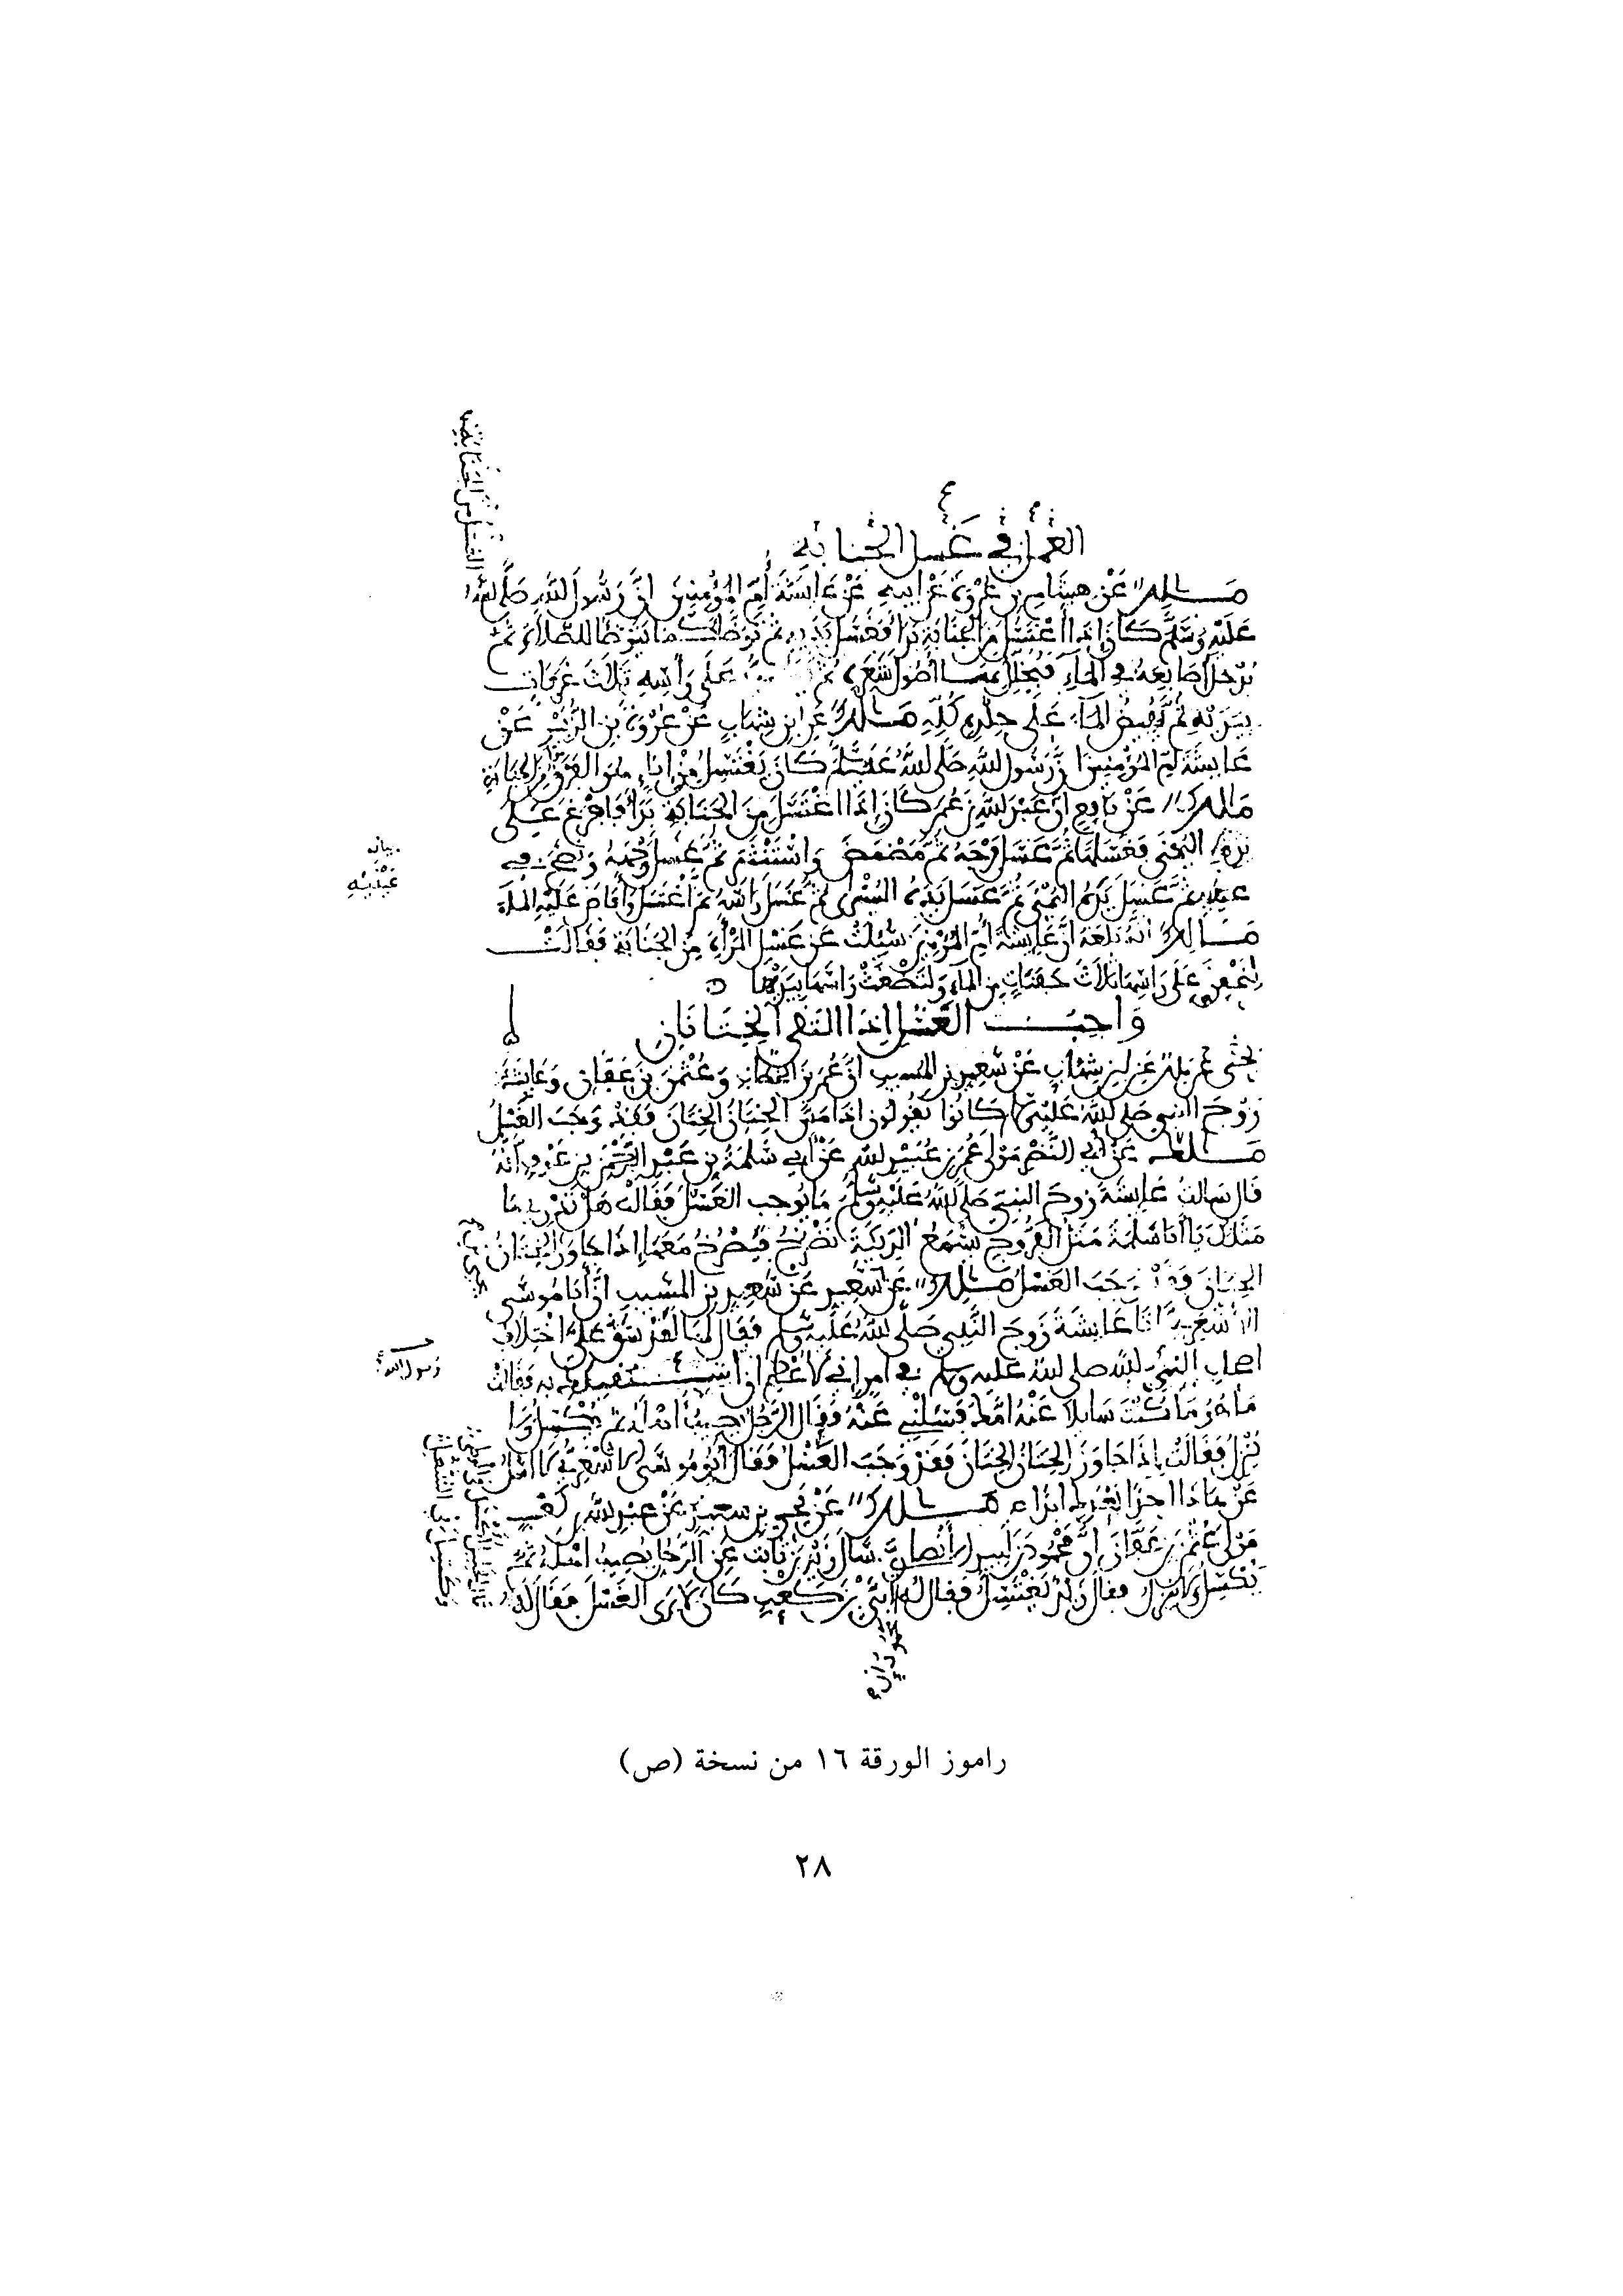 العمل في غسل الجنابة
مالك عن هشام بن عروة عن ابيه عن عايشة أم المؤمنين ان رسول الله صلى الله
عليه وسلم كان اذا اغتسل من الجنابة بدأ فغسل يديه ثم توضأ كما يتوضأ للصلاة ثم
يدخل اصابعه في الماء فيخلل بها أصول شعره ثم على رأسه ثلاث غرفات
بيديه ثم يفيض الماء على جلده كله مالك عن ابن شهاب عن عروة بن الزبير عن
عايشة ام المؤمنين ان رسول الله صلى الله عليه وسلم كان يغتسل من اناء هو الفرق من الجنابة
مالك عن نافع ان عبد الله بن عمر كان اذا اغتسل من الجنابة بدأ فافرغ على
يده اليمنى فغسلها ثم غسل فرجه ثم مضمض واستنثر ثم غسل وجهه ونضح في
عينيه ثم غسل يده اليمنى ثم غسل يده اليسرى ثم غسل راسه ثم اغتسل وأفاض عليه الماء
مالك انه بلغه ان عايشة أم المؤمنين سئلت عن غسل المرأة من الجنابة فقالت
لتحفن على راسها ثلاث حفنات من الماء ولتضغث راسها بيديها
واجب الغسل اذا التقى الختانان
يحيى عن مالك عن ابن شهاب عن سعيد بن المسيب ان عمر بن الخطاب وعثمن بن عفان وعايشة
زوج النبي صلى الله عليه وسلم كانوا يقولون اذا مس الختان الختان فقد وجب الغسل
مالك عن أبي النضر مولى عمر بن عبيد الله عن أبي سلمة بن عبد الرحمن بن عوف أنه
قال سالت عايشة زوج النبي صلى الله عليه وسلم ما يوجب الغسل فقالت هل تدري ما
مثلك يا أبا سلمة مثل الفروج يسمع الديكة تصرخ فيصرخ معها إذا جاوز الختان
الختان فقد وجب الغسل مالك عن يحيى بن سعيد عن سعيد بن المسيب ان أبا موسى
الأشعري اتا عايشة زوج النبي صلى الله عليه وسلم فقال لها لقد شق علي اختلاف
اصحاب النبي صلى الله عليه وسلم في امر اني لأعظم ان استقبلك به فقالت
ما هو ما كنت سايلا عنه امك فسلني عنه فقال الرجل يصيب أهله ثم يكسل ولا
ينزل فقالت إذا جاوز الختان الختان فقد وجب الغسل فقال أبو موسى الأشعري لا أسل
عن هاذا احدا بعدك ابدا مالك عن يحيى بن سعيد عن عبد الله بن كعب
مولى عثمن بن عفان ان محمود بن لبيد الأنصاري سال زيد بن ثابت عن الرجل يصيب اهله ثم
يكسل ولا ينزل فقال زيد يغتسل فقال له محمود إن أبي بن كعب كان لا يرى الغسل فقال له
راموز الورقة ١٦ من نسخة (ص)
٢٨